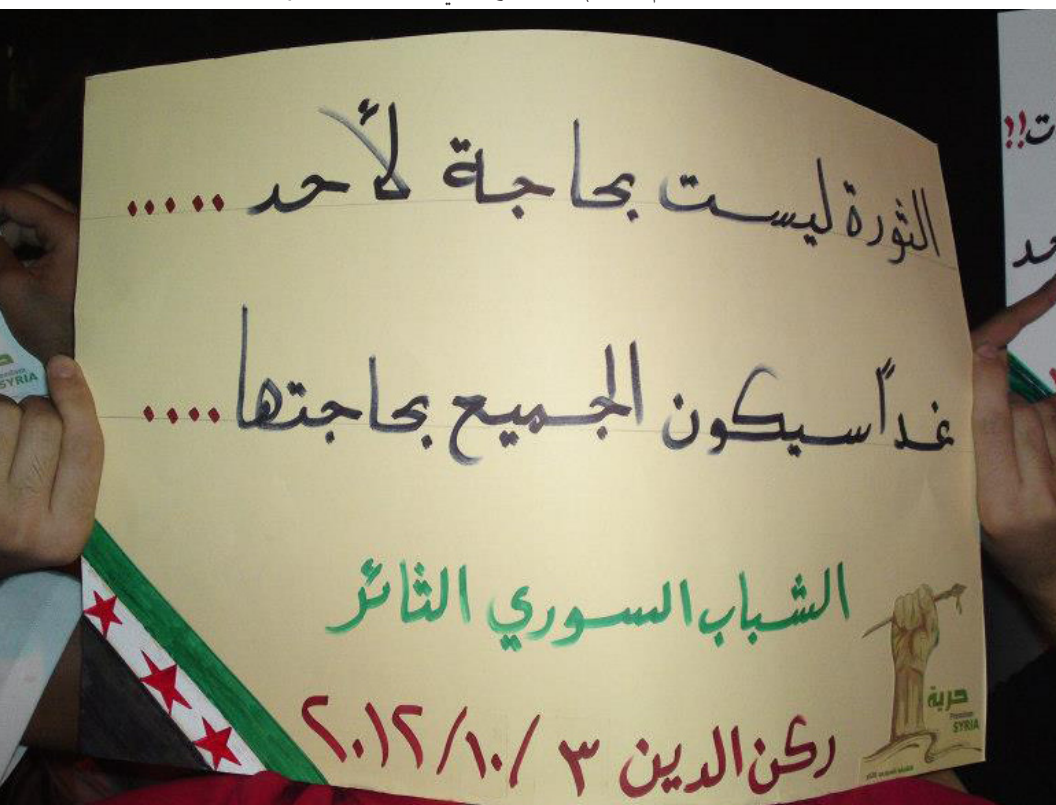 الثورة ليست بحاجة لأحد .....
غداً سيكون الجميع بحاجتها ....
الشباب السوري الثائر
ركن الدين ٣ /١٠/٢٠١٢
حرية
Freedom
SYRIA
ت!!
SYRIA